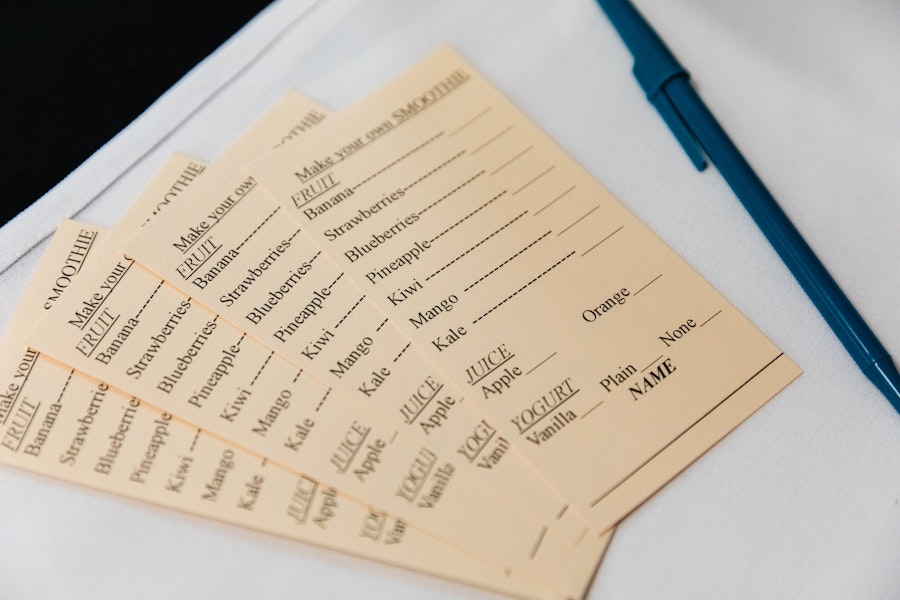 Make your own SMOOTHIE
FRUIT
Banana---------------- ___
Strawberries---------- ___
Blueberries----------- ___
Pineapple------------- ___
Kiwi ----------------- ___
Mango ---------------- ___
Kale ----------------- ___
JUICE
Apple ___ Orange ___
YOGURT
Vanilla ___ Plain ___ None ___
NAME
Make your own
FRUIT
Banana
Strawberries
Blueberries
Pineapple
Kiwi
Mango
Kale
JUICE
Apple
YOGU
Vanil
Make your
FRUIT
Banana
Strawberries
Blueberries
Pineapple
Kiwi
Mango
Kale
JUICE
Apple
YOGU
Vanilla
Make your SMOOTHIE
FRUIT
Banana
Strawberrie
Blueberrie
Pineapple
Kiwi
Mango
Kale
JUICE
Apple
YO
Van